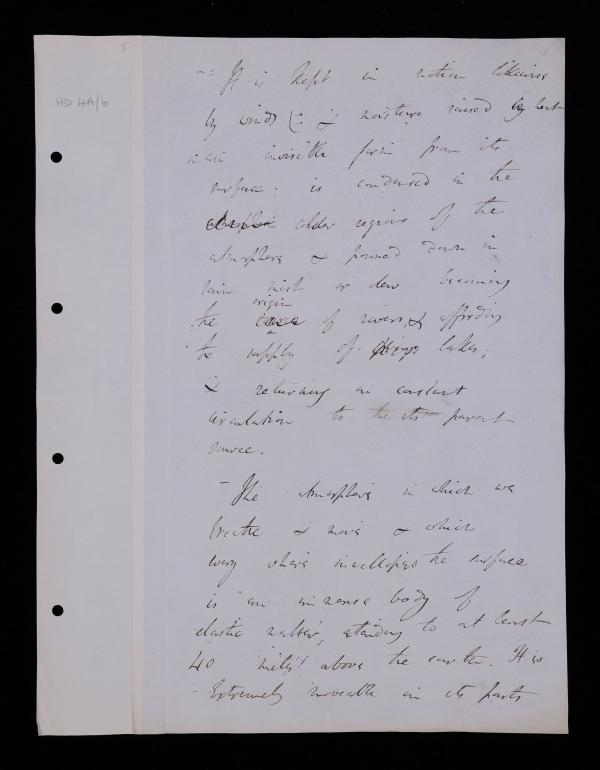 5
HD 4A/6
- It is kept in motion likewise
by winds & moisture raised by heat
in an invisible form from its
surface is condensed in the
colder regions of the
atmosphere & poured down in
rain mist or dew becoming
origin
the cause of rivers, & affording
the supply of lakes;
& returning in constant
circulation to the its parent
source.
- The Atmosphere in which we
breathe & move & which
every where invellopes the surface
is an immense body of
elastic matter, extending to at least
40 miles above the earth. It is
- Extremely moveable in its parts